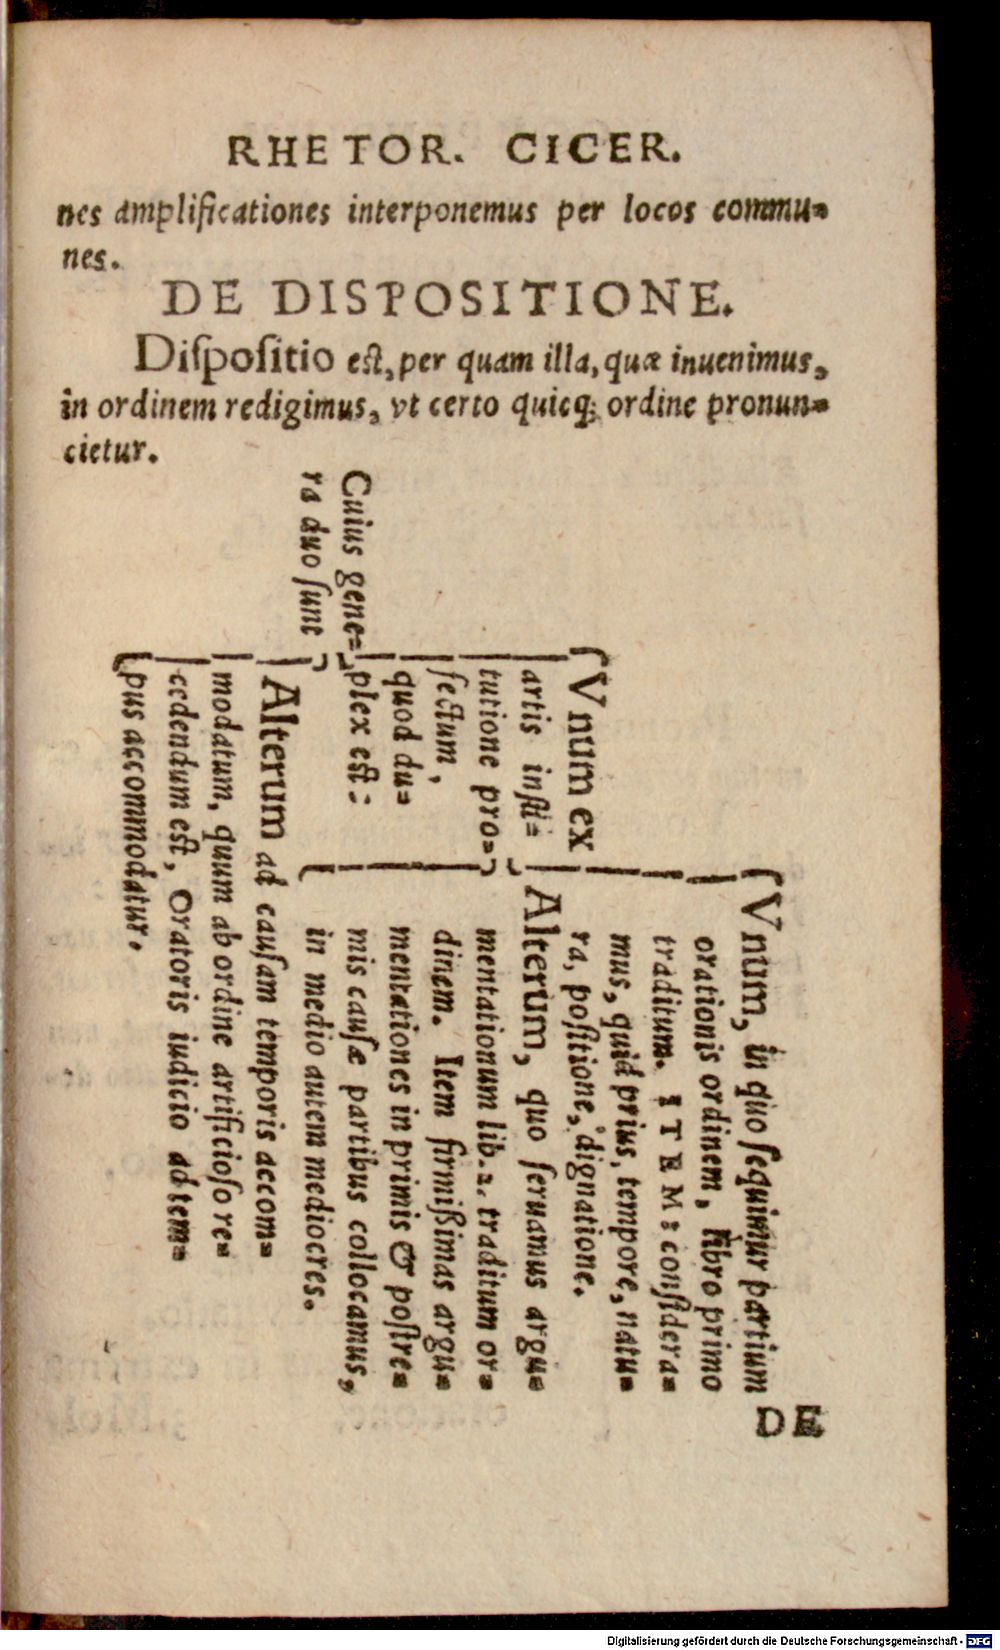 RHETOR. CICER.
nes amplificationes interponemus per locos commu=
nes.
DE DISPOSITIONE.
Diſpoſitio eſt, per quam illa, quæ inuenimus,
in ordinem redigimus, vt certo quicq; ordine pronun=
cietur.
Cuius gene=
ra duo ſunt
Vnum ex
artis inſti=
tutione pro=
fectum,
quod du=
plex eſt:
Vnum, in quo ſequimur partium
orationis ordinem, libro primo
traditum. ITEM: conſidera=
mus, quid prius, tempore, natu=
ra, poſitione, dignatione.
Alterum, quo ſeruamus argu=
mentationum lib. 2. traditum or=
dinem. Item firmißimas argu=
mentationes in primis & poſtre=
mis cauſæ partibus collocamus,
in medio autem mediocres.
Alterum ad cauſam temporis accom=
modatum, quum ab ordine artificioſo re=
cedendum eſt, Oratoris iudicio ad tem=
pus accommodatur.
DE
Digitalisierung gefördert durch die Deutsche Forschungsgemeinschaft - DFG